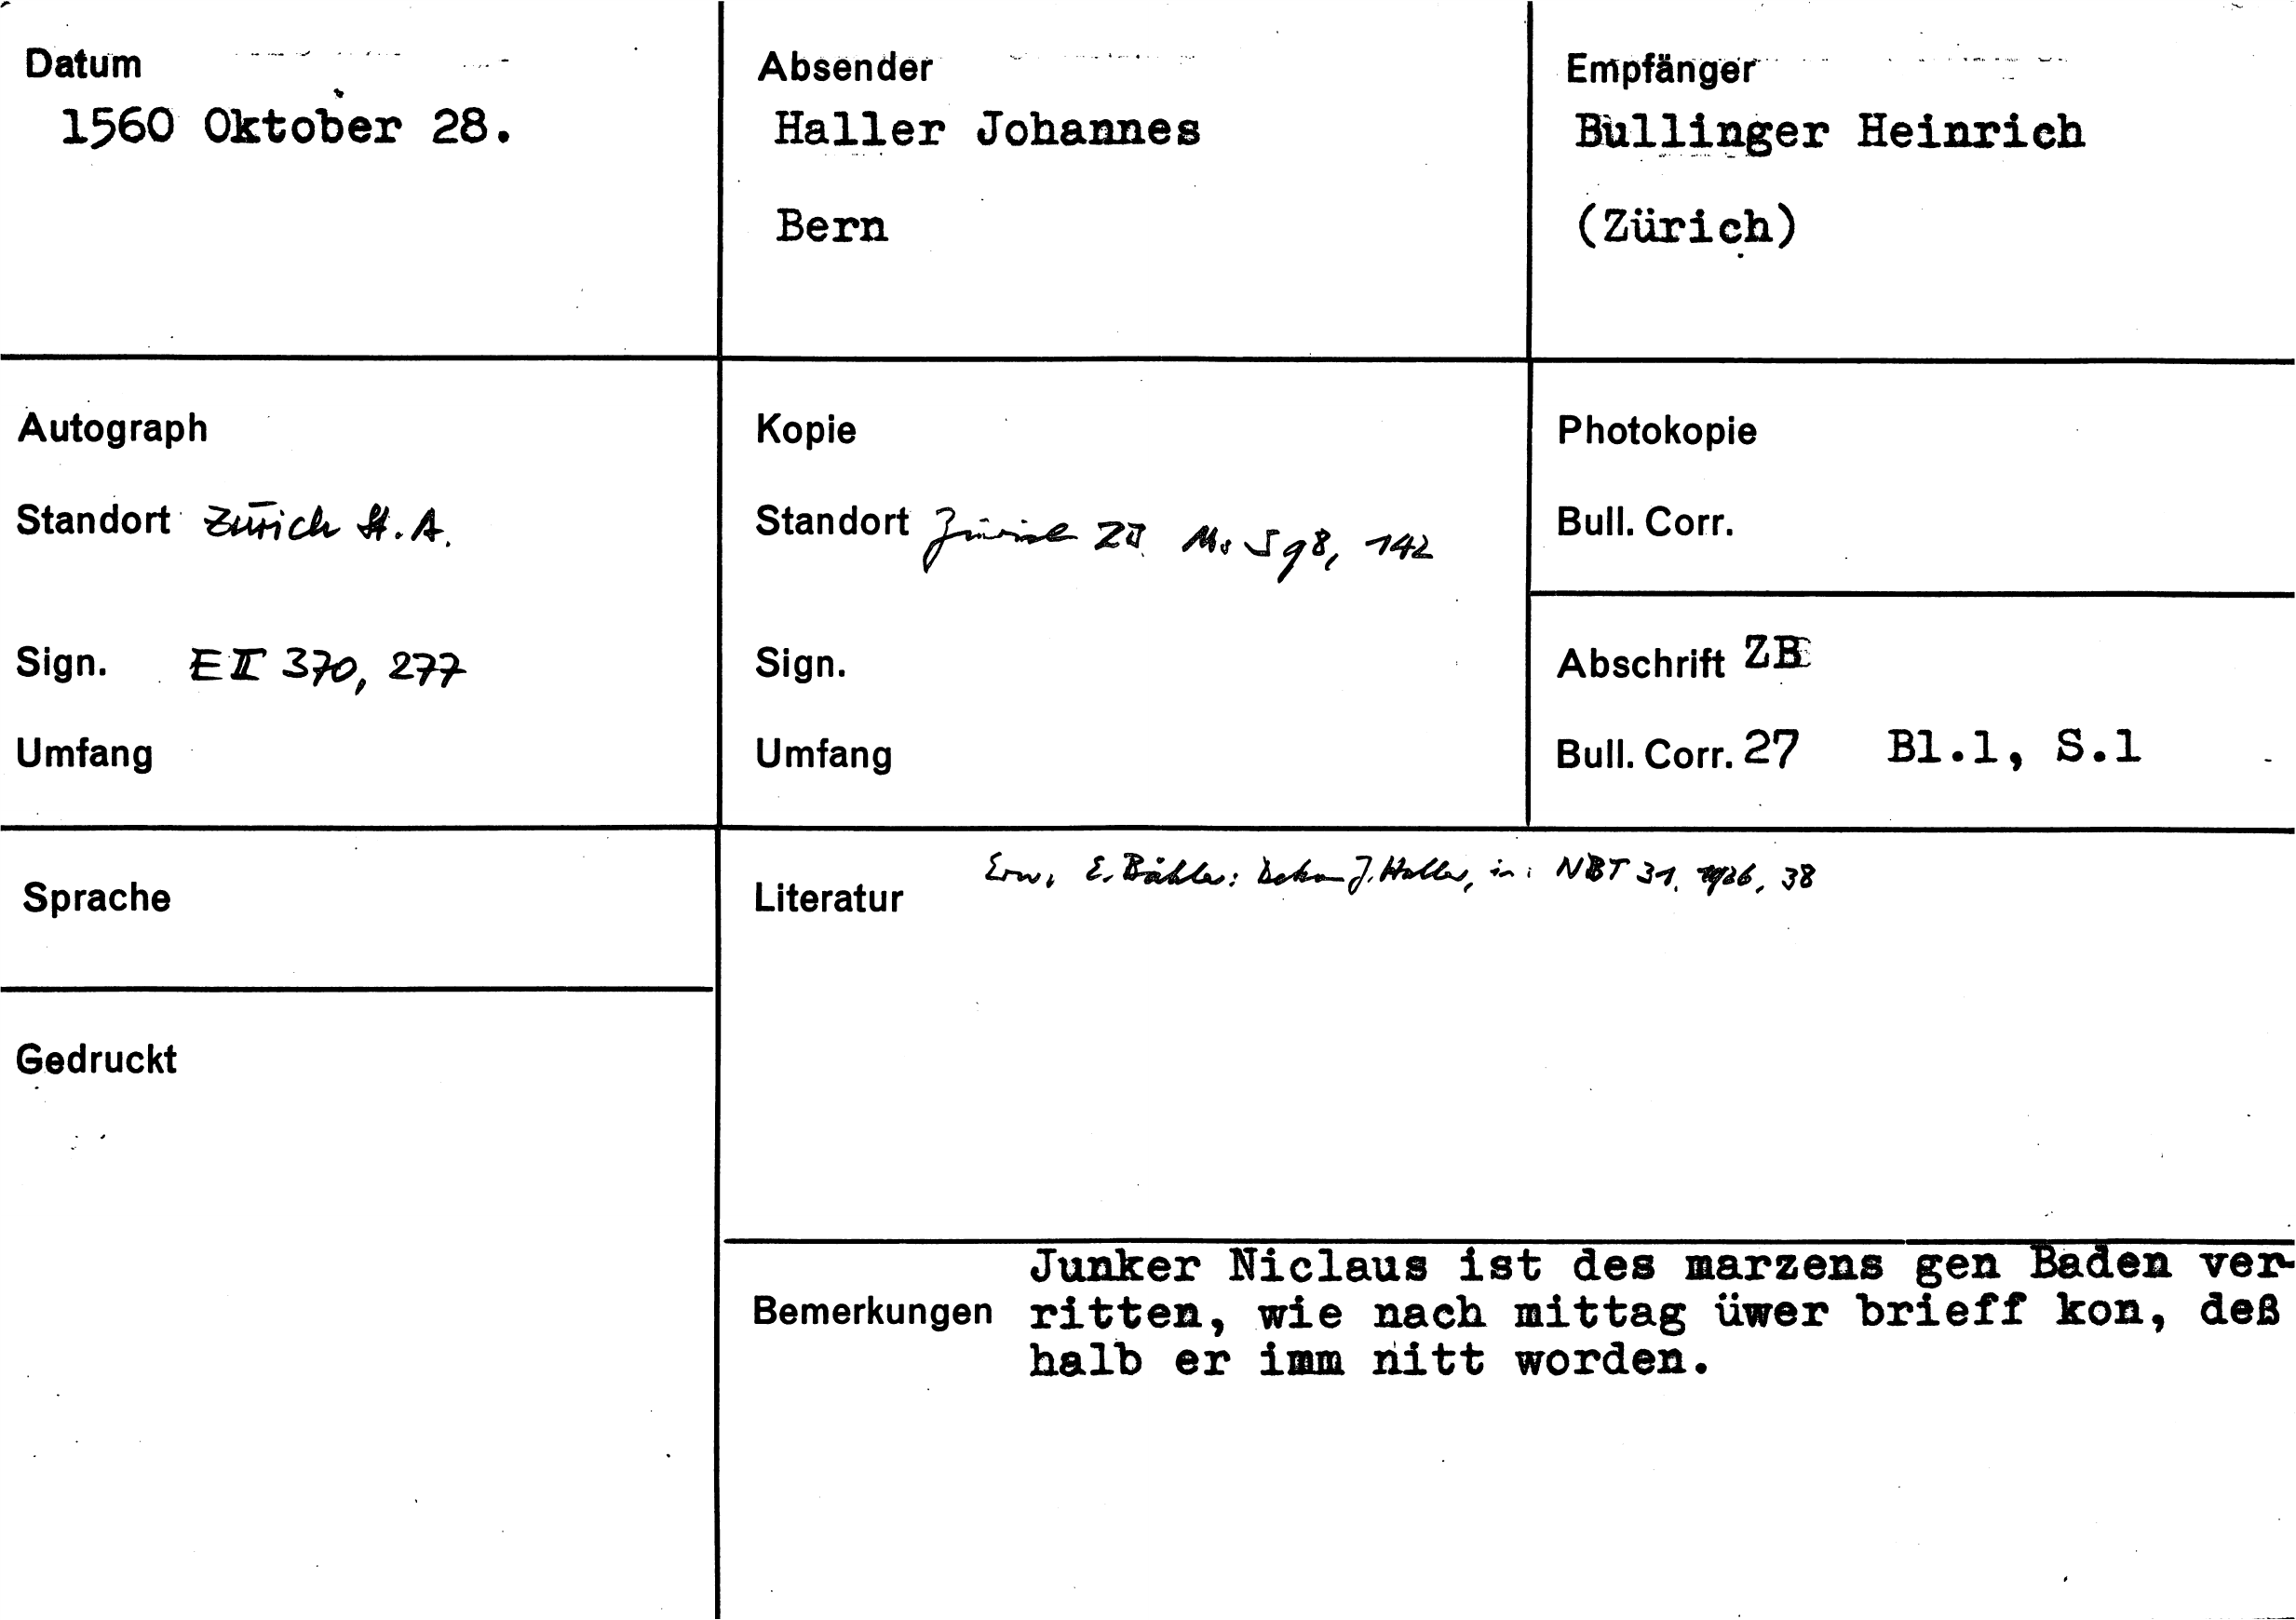 Datum
1560 Oktober 28.
Absender
Haller Johannes
Bern
Empfänger
Bullinger Heinrich
(Zürich)
Autograph
Standort Zürich St.A.
Sign. E II 370, 277
Umfang
Kopie
Standort Zürich ZB Ms S 98, 142
Sign.
Umfang
Photokopie
Bull. Corr.
Abschrift ZB
Bull. Corr. 27 Bl.1, S.1
Sprache
Gedruckt
Literatur Erw. E. Bähler: Dekan J. Haller, in: NBT 31, 1926, 38
Bemerkungen
Junker Niclaus ist des marzens gen Baden ver-
ritten, wie nach mittag üwer brieff kon, deß
halb er imm nitt worden.